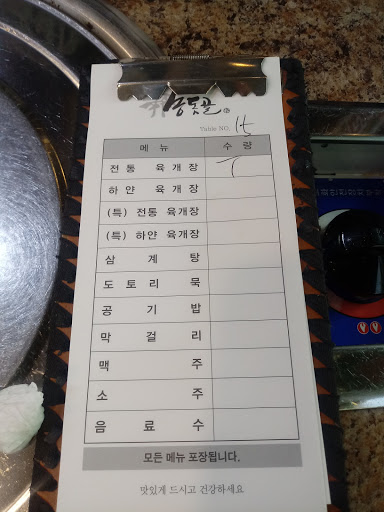 Table NO. 15
메 뉴 수 량
전통 육개장 1
하얀 육개장
(특) 전통 육개장
(특) 하얀 육개장
삼 계 탕
도 토 리 묵
공 기 밥
막 걸 리
맥 주
소 주
음 료 수
모든 메뉴 포장됩니다.
맛있게 드시고 건강하세요